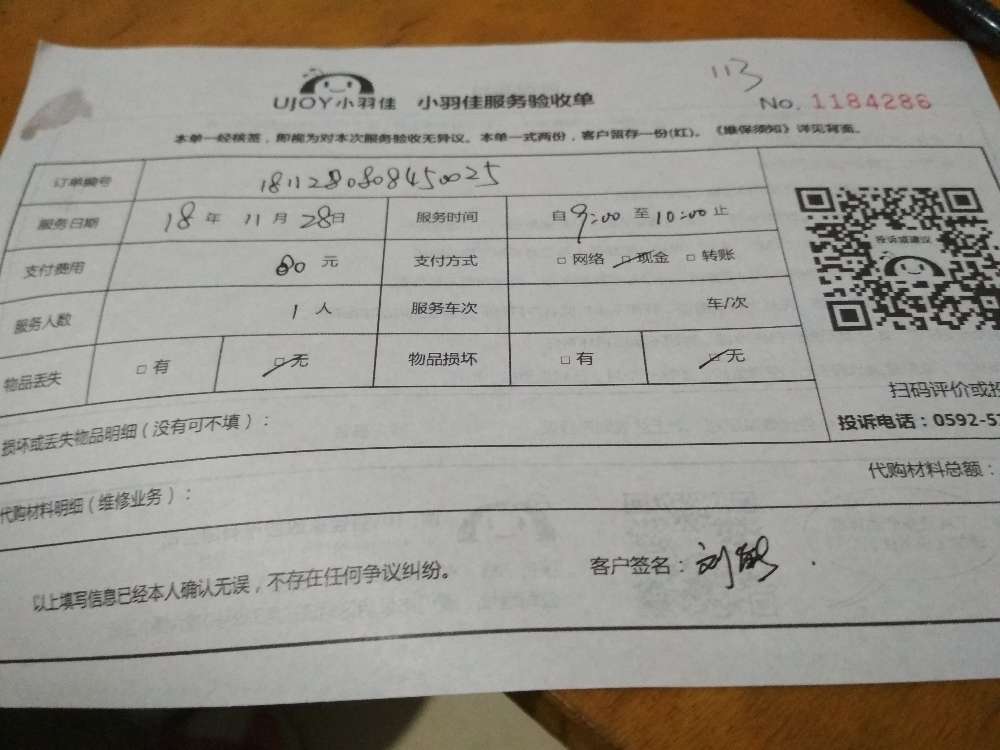 113
UJOY小羽佳 小羽佳服务验收单 No. 1184286
本单一经核签，即视为对本次服务验收无异议。本单一式两份，客户留存一份(红)。《维保须知》详见背面。
订单编号 1811280808450025
服务日期 18年 11月 28日 服务时间 自 9:00 至 10:00 止
支付费用 80 元 支付方式 □ 网络 □ 现金 □ 转账
服务人数 1 人 服务车次 车/次
物品丢失 □ 有 □ 无 物品损坏 □ 有 □ 无
投诉或建议
扫码评价或投
投诉电话：0592-5
损坏或丢失物品明细（没有可不填）：
代购材料明细（维修业务）： 代购材料总额：
以上填写信息已经本人确认无误，不存在任何争议纠纷。 客户签名：刘